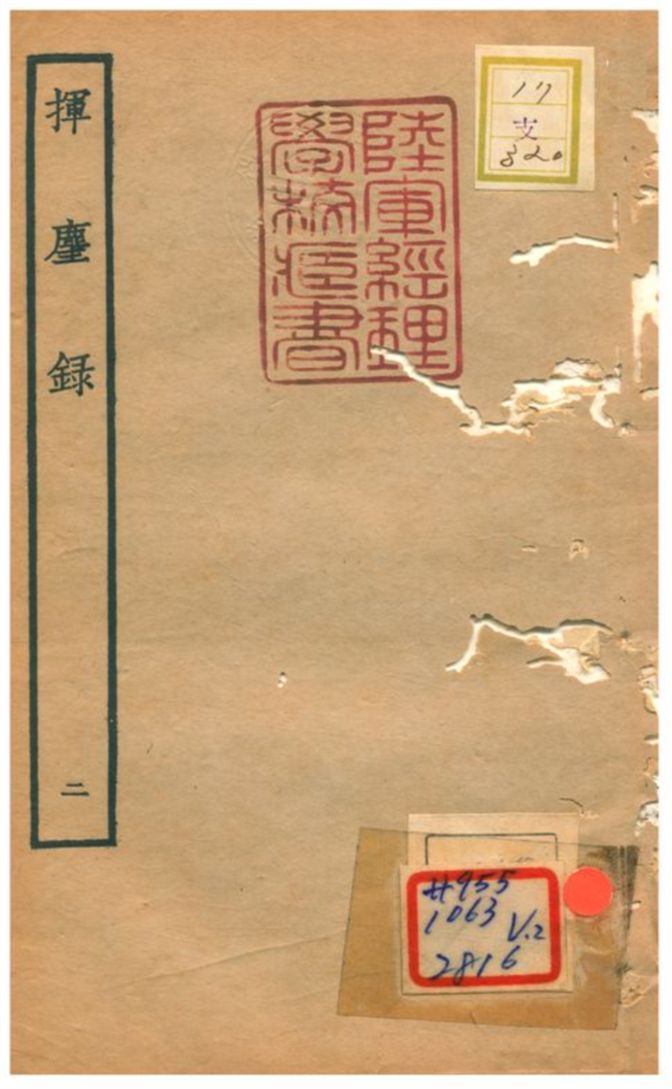 揮麈録
二
陸軍經理
學校藏書
17
支
320
#955
1063
V.2
2816